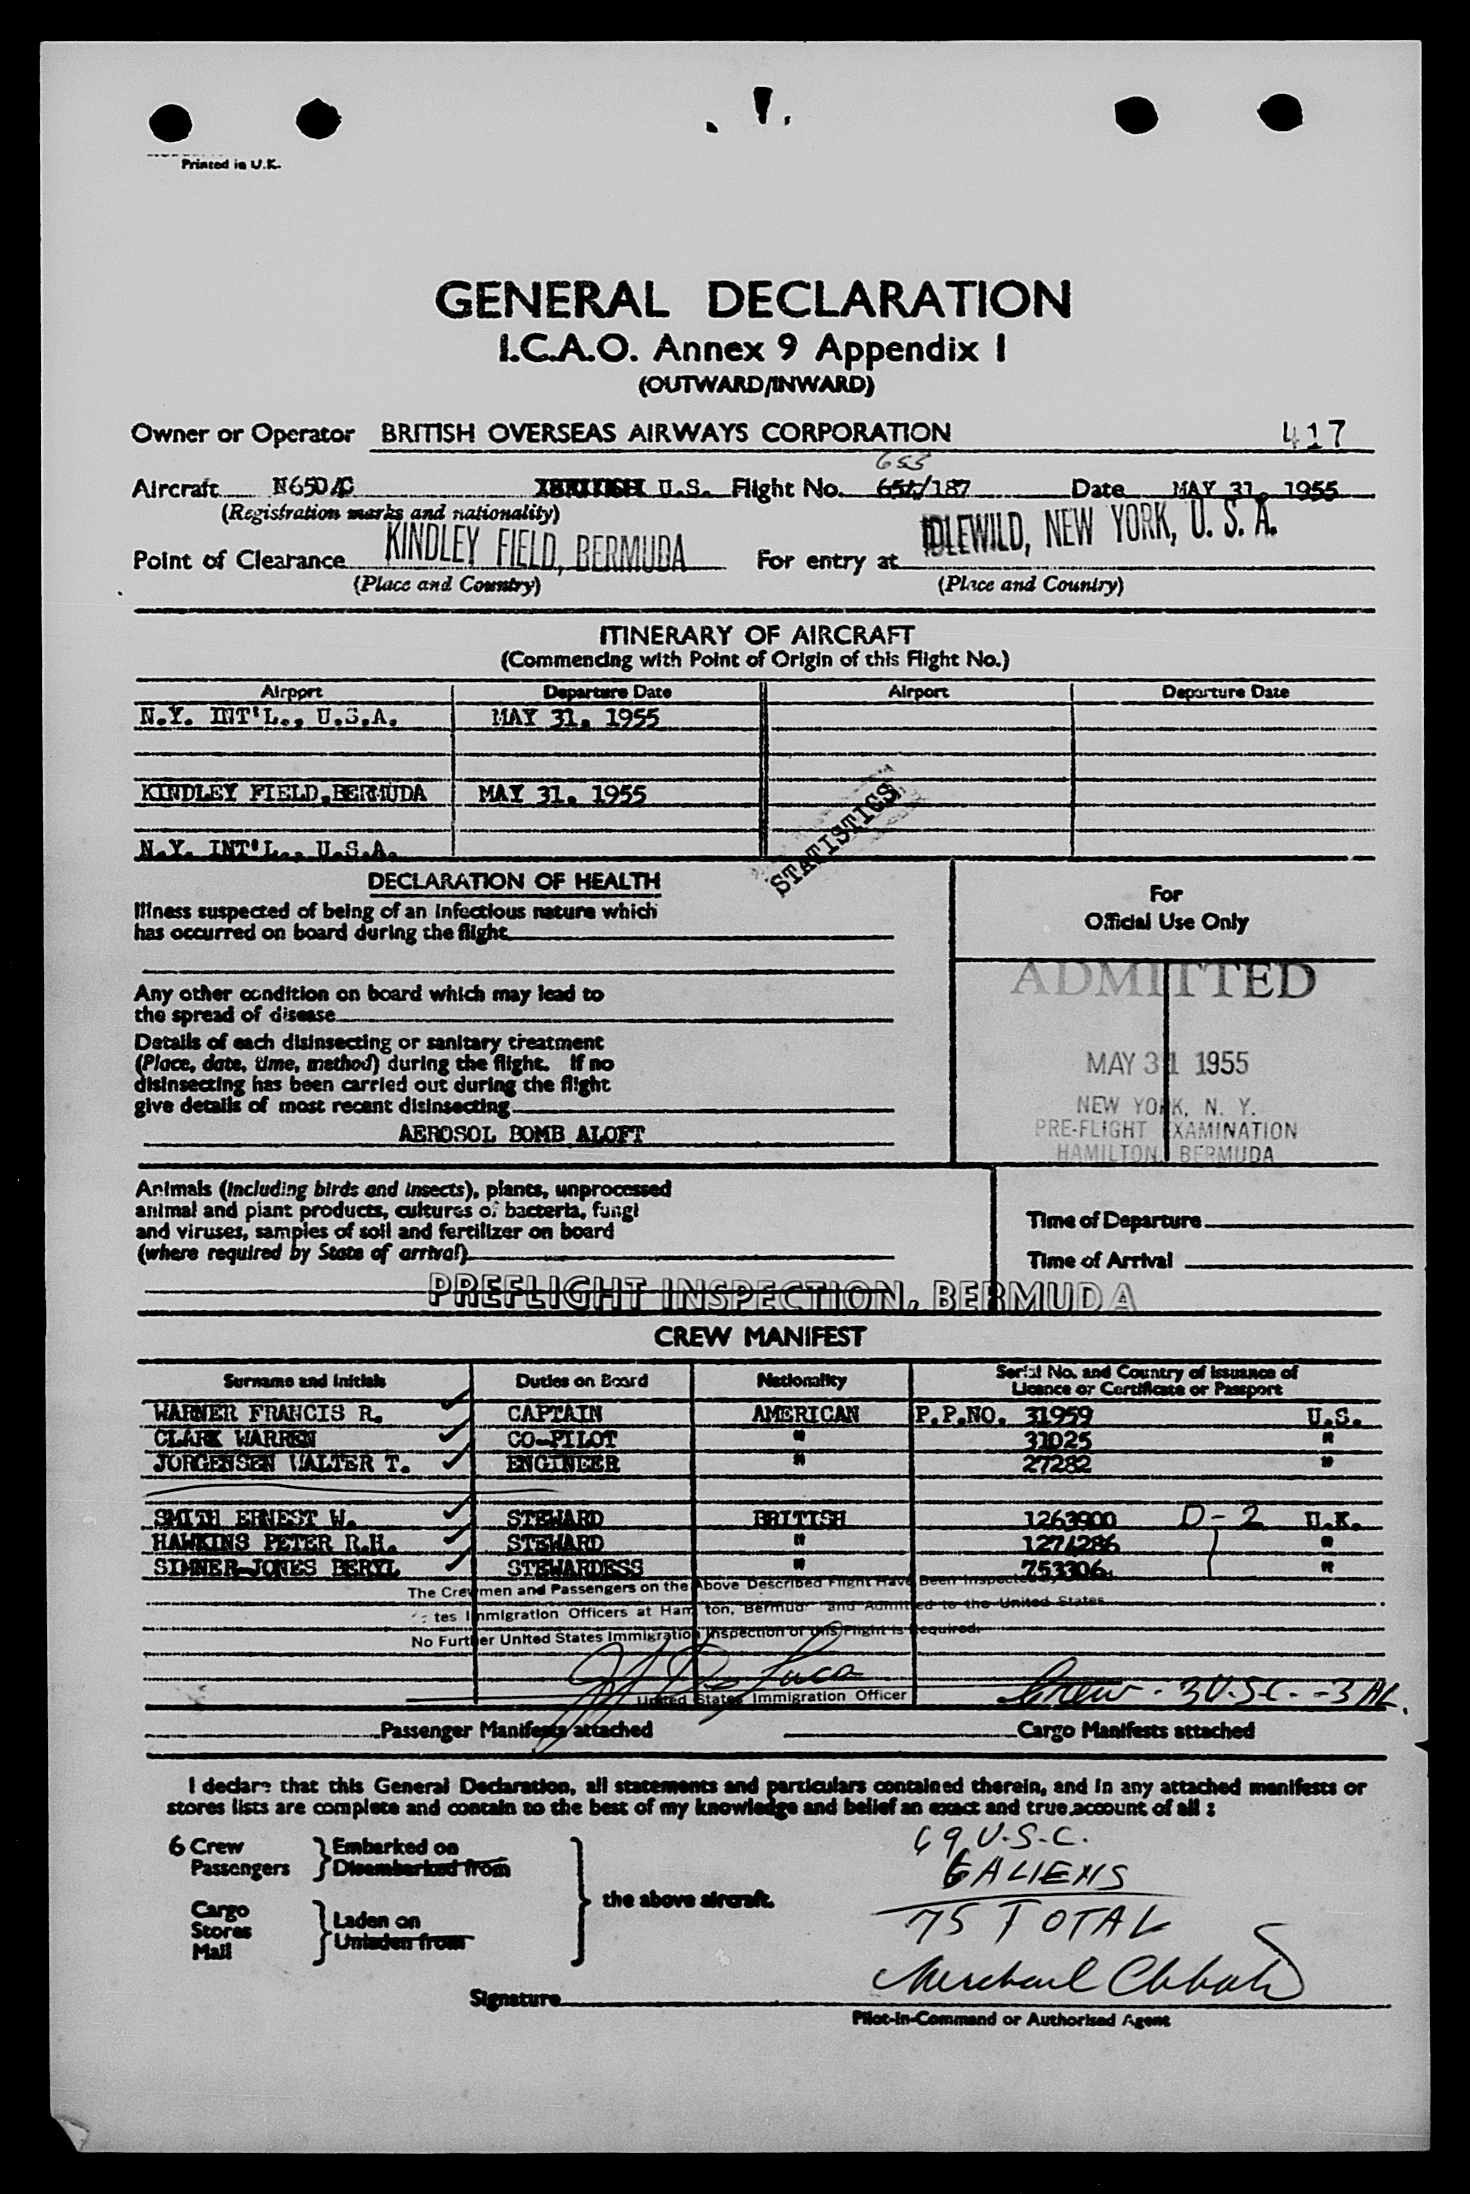 Printed in U.K.
GENERAL DECLARATION
I.C.A.O. Annex 9 Appendix I
(OUTWARD/INWARD)
Owner or Operator BRITISH OVERSEAS AIRWAYS CORPORATION 417
653
Aircraft N65D/C U.S. Flight No. 654/187 Date MAY 31, 1955
(Registration marks and nationality)
Point of Clearance KINDLEY FIELD, BERMUDA For entry at IDLEWILD, NEW YORK, U. S. A.
(Place and Country) (Place and Country)
ITINERARY OF AIRCRAFT
(Commencing with Point of Origin of this Flight No.)
Airport Departure Date Airport Departure Date
N.Y. INT'L., U.S.A. MAY 31, 1955
KINDLEY FIELD, BERMUDA MAY 31, 1955
N.Y. INT'L., U.S.A.
STATISTICS
DECLARATION OF HEALTH
Illness suspected of being of an infectious nature which
has occurred on board during the flight
Any other condition on board which may lead to
the spread of disease
Details of each disinsecting or sanitary treatment
(Place, date, time, method) during the flight. If no
disinsecting has been carried out during the flight
give details of most recent disinsecting
AEROSOL BOMB ALOFT
For
Official Use Only
ADMITTED
MAY 31 1955
NEW YORK, N. Y.
PRE-FLIGHT EXAMINATION
HAMILTON, BERMUDA
Animals (including birds and insects), plants, unprocessed
animal and plant products, cultures of bacteria, fungi
and viruses, samples of soil and fertilizer on board
(where required by State of arrival)
Time of Departure
Time of Arrival
PREFLIGHT INSPECTION, BERMUDA
CREW MANIFEST
Surname and Initials Duties on Board Nationality Serial No. and Country of issuance of
Licence or Certificate or Passport
WARNER FRANCIS R. CAPTAIN AMERICAN P.P.NO. 31959 U.S.
CLARK WARREN CO-PILOT " 31025 "
JORGENSEN WALTER T. ENGINEER " 27282 "
SMITH ERNEST W. STEWARD BRITISH 1263900 D-2 U.K.
HAWKINS PETER R.H. STEWARD " 1274286 "
SIMNER-JONES BERYL STEWARDESS " 753306. "
The Crewmen and Passengers on the Above Described Flight Have Been Inspected by
tes Immigration Officers at Hamilton, Bermuda and Admitted to the United States
No Further United States Immigration Inspection of this Flight is Required.
United States Immigration Officer
Crew - 3 U.S.C. - 3 AL.
Passenger Manifests attached Cargo Manifests attached
I declare that this General Declaration, all statements and particulars contained therein, and in any attached manifests or
stores lists are complete and contain to the best of my knowledge and belief an exact and true account of all :
6 Crew
Passengers
Embarked on
Disembarked from
Cargo
Stores
Mail
Laden on
Unladen from
the above aircraft.
69 U.S.C.
6 ALIENS
75 TOTAL
Signature
Pilot-in-Command or Authorised Agent